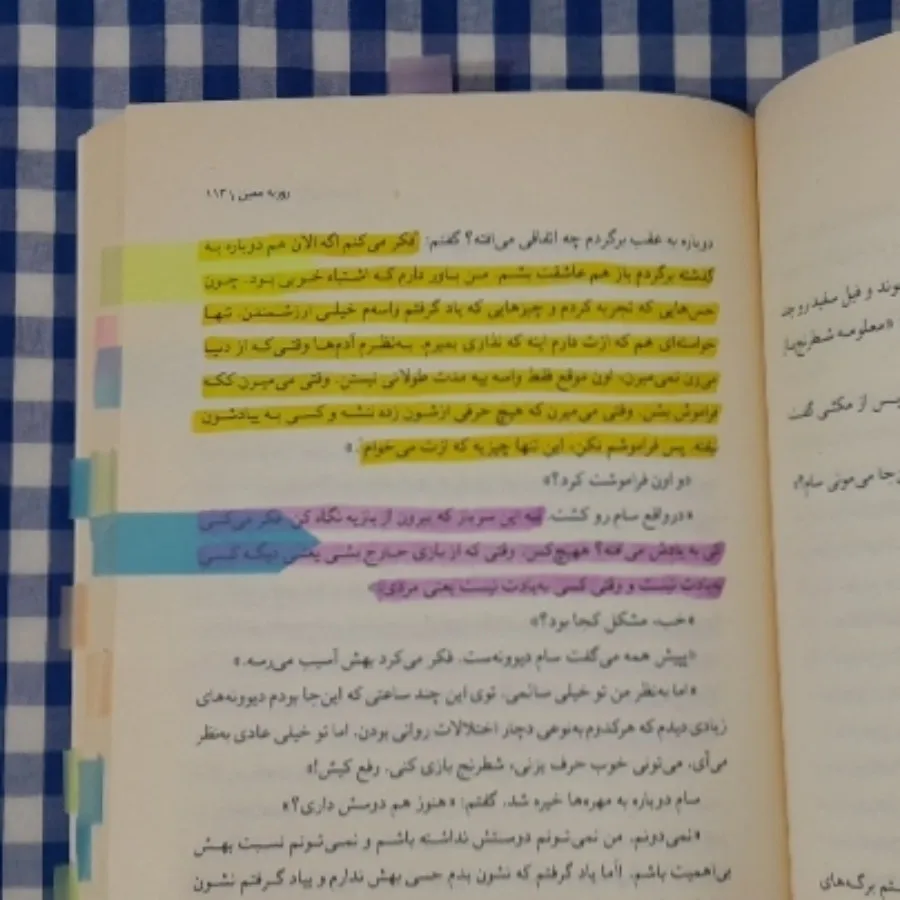 روزبه معین | ۱۱۳
دوباره به عقب برگردم چه اتفاقی می‌افته؟ گفتم: فکر می‌کنم اگه الان هم دوباره به
گذشته برگردم باز هم عاشقت بشم. من باور دارم که اشتباه خوبی بود. چون
حس‌هایی که تجربه کردم و چیزهایی که یاد گرفتم واسه‌م خیلی ارزشمندن. تنها
خواسته‌ای هم که ازت دارم اینه که نذاری بمیرم. به‌نظرم آدم‌ها وقتی که از دنیا
می‌رن نمی‌میرن، اون موقع فقط واسه یه مدت طولانی نیستن. وقتی می‌میرن که
فراموش بشن. وقتی می‌میرن که هیچ حرفی ازشون زده نشه و کسی به یادشون
نیفته. پس فراموشم نکن، این تنها چیزیه که ازت می‌خوام.»
«و اون فراموشت کرد؟»
«درواقع سام رو کشت. به این سرباز که بیرون از بازیه نگاه کن. فکر می‌کنی
کی به یادش می‌افته؟ هیچ‌کس. وقتی که از بازی خارج بشی یعنی دیگه کسی
به‌یادت نیست و وقتی کسی به‌یادت نیست یعنی مردی.»
«خب، مشکل کجا بود؟»
«پیش همه می‌گفت سام دیوونه‌ست. فکر می‌کرد بهش آسیب می‌رسه.»
«اما به‌نظر من تو خیلی سالمی. توی این چند ساعتی که این‌جا بودم دیوونه‌های
زیادی دیدم که هرکدوم به‌نوعی دچار اختلالات روانی بودن. اما تو خیلی عادی به‌نظر
می‌آی، می‌تونی خوب حرف بزنی، شطرنج بازی کنی. رفع کیش!»
سام دوباره به مهره‌ها خیره شد. گفتم: «هنوز هم دوسش داری؟»
«نمی‌دونم. من نمی‌تونم دوستش نداشته باشم و نمی‌تونم نسبت بهش
بی‌اهمیت باشم. اما یاد گرفتم که نشون بدم حسی بهش ندارم و یاد گرفتم نشون
و فیل سفید رو جد
«معلومه شطرنج‌باز
پس از مکثی گفت
جا می‌مونی سام؟»
برگه‌های